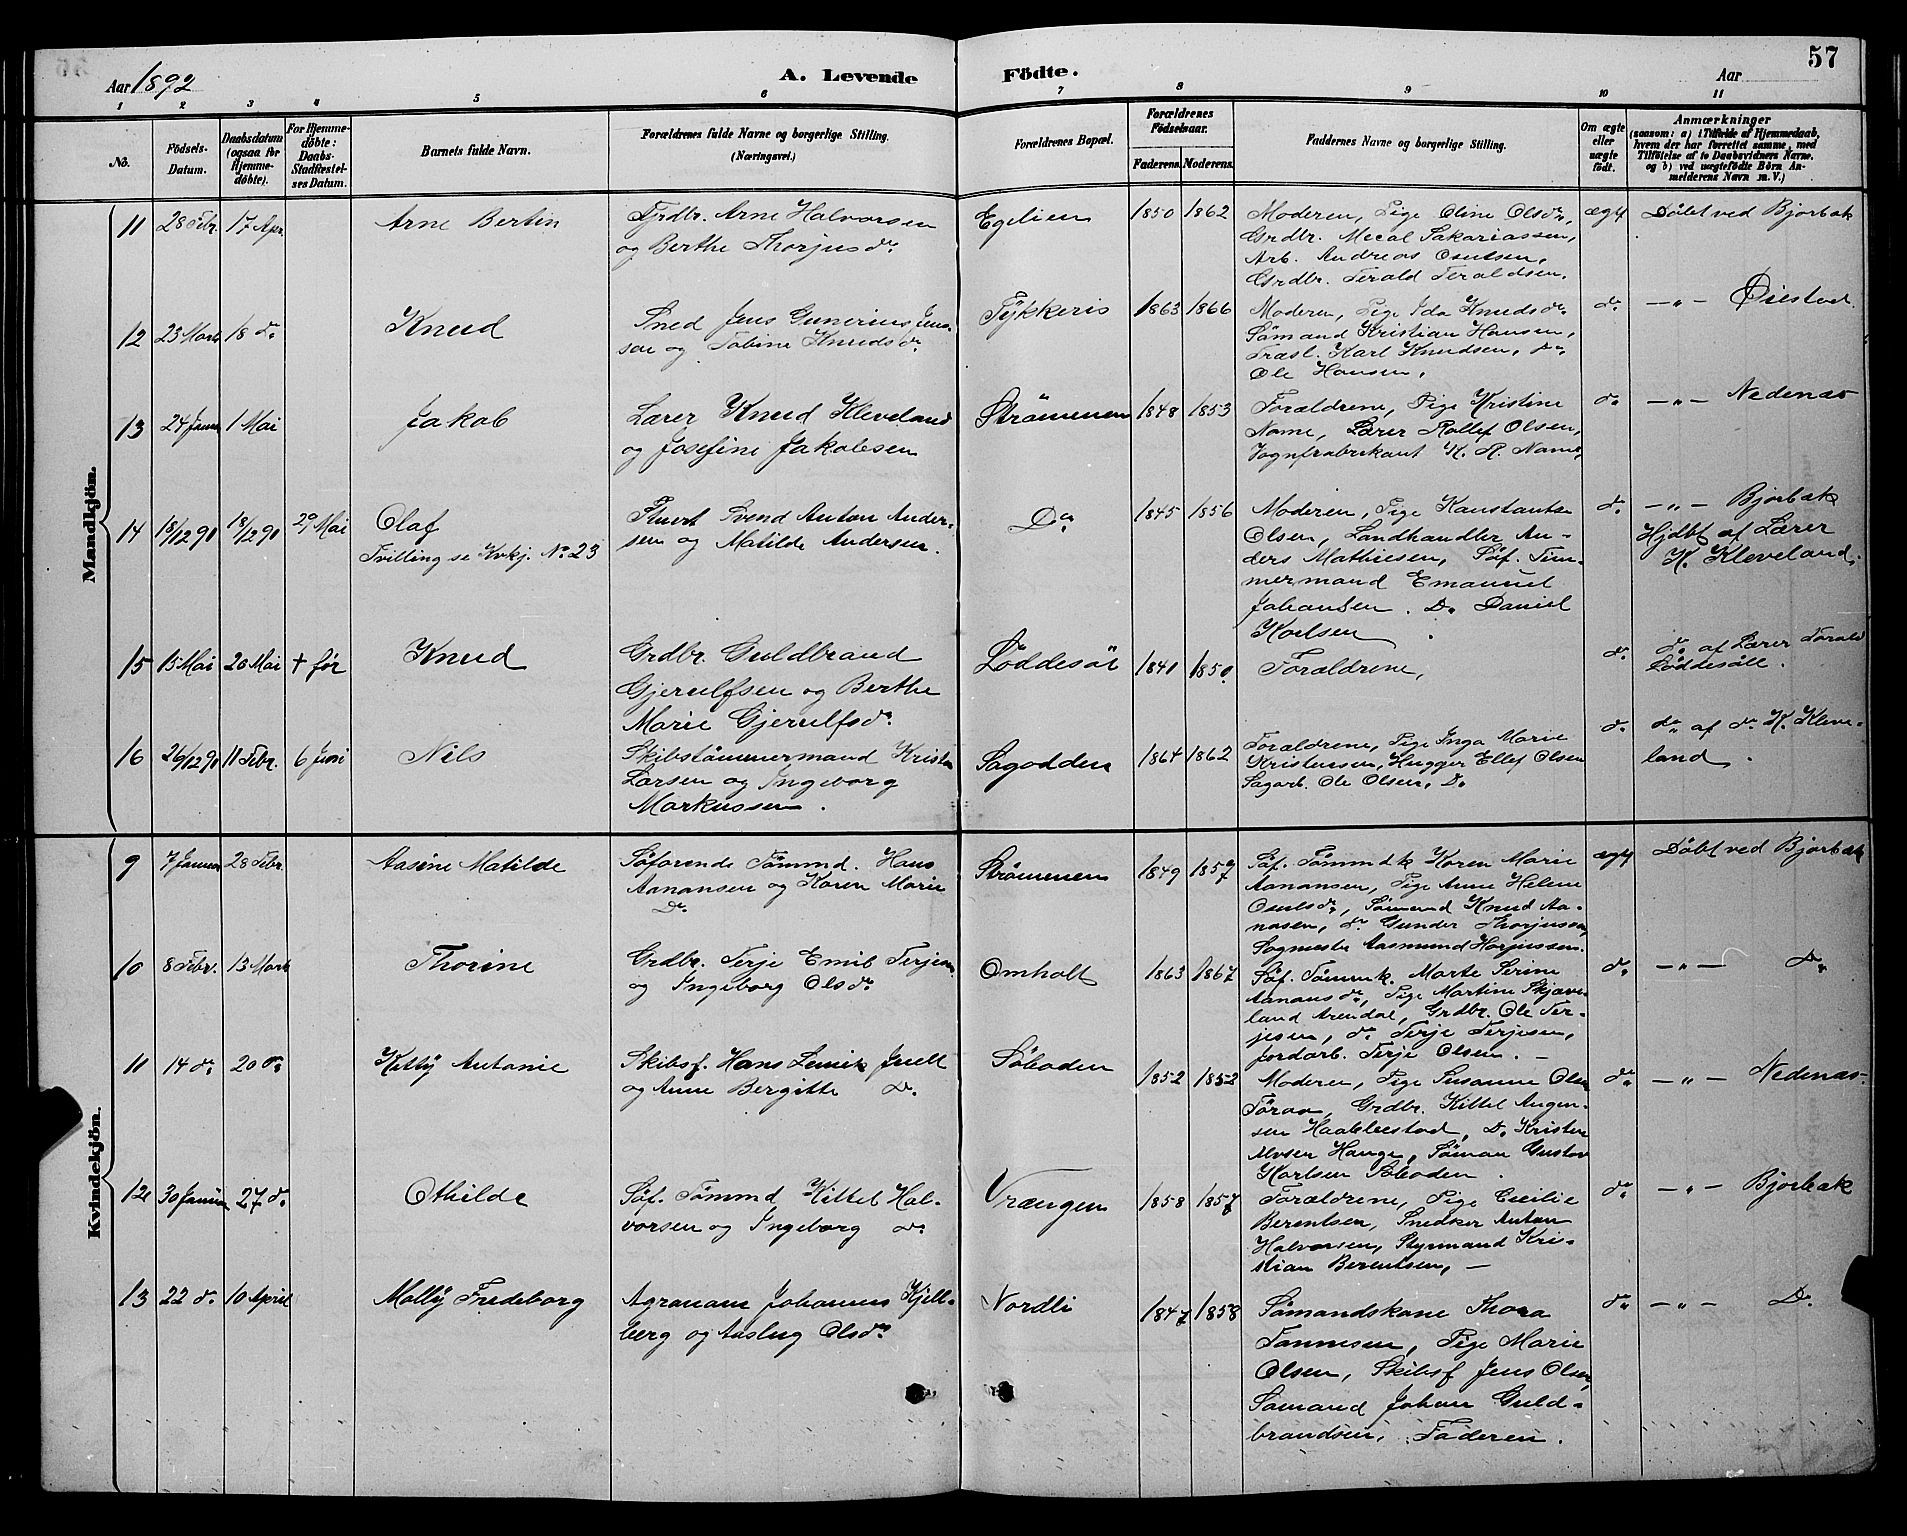 57
Aar 1892
A. Levende Födte.
Aar
1 2 3 4 5 6 7 8 9 10 11
No.
Födsels-
Datum.
Daabsdatum
(ogsaa for
Hjemme-
döbte).
For Hjemme-
döbte:
Daabs-
Stadfæstel-
ses Datum.
Barnets fulde Navn.
Forældrenes fulde Navne og borgerlige Stilling.
(Næringsvei.)
Forældrenes Bopæl.
Forældrenes
Födselsaar.
Faderens. Moderens.
Faddernes Navne og borgerlige Stilling.
Om ægte
eller
uægte
født.
Anmærkninger
(saasom: a) i Tilfælde af Hjemmedaab,
hvem der har forrettet samme, med
Tilföielse af to Daabsvidners Navne,
og b) ved uægtefödte Börn An-
melderens Navn m. V.)
Mandkjön.
11 28 Febr. 17 Apr. Arne Bertin
Fyrdbr. Arne Halvorsen
og Berthe Thorjusdr.
Egelien 1850 1862
Moderen, Pige Oline Olsdr,
Grdbr. Mecal Sakariassen,
Arb. Andreas Osulsen,
Grdbr. Terald Teraldsen.
ægte Döbt ved Bjorbæk
12 23 Marts 18 do Knud
Sned Jens Gunerius Jen-
sen og Tobine Knudsdr
Tykkeris 1863 1866
Moderen, Pige Ida Knudsdr
Sömand Kristian Hansen,
Træsl. Karl Knudsen, do
Ole Hansen,
do —"— Øiestad
13 24 Januar 1 Mai Jakob
Lærer Knud Kleveland
og Josefine Jakobsen
Strömmen 1848 1853
Forældrene, Pige Kristine
Name, Lærer Rollef Olsen,
Vognfabrikant K. R. Name,
do —"— Nedenæs
14 18/12 90 18/12 90 29 Mai Olaf
Tvilling se Kvkj. No 23
Stuert Svend Anton Ander-
sen og Matilde Andersen.
Do 1845 1856
Moderen, Pige Konstantse
Olsen, Landhandler An-
ders Mathiesen, Söf. Tim-
mermand Emanuel
Johansen. Do Daniel
Karlsen
do —"— Bjorbæk
Hjdbt af Lærer
K. Kleveland.
15 15 Mai 20 Mai + før Knud
Grdbr. Guldbrand
Gjerulfsen og Berthe
Marie Gjerulfsdr.
Löddesöl 1841 1850
Forældrene,
do do af Lærer Torald
Löddesöll.
16 26/12 90 11 Febr. 6 Juni Nils
Skibstömmermand Kristen
Larsen og Ingeborg
Markussen.
Sagodden 1864 1862
Forældrene, Pige Inga Marie
Kristensen, Hugger Ellef Olsen
Sagarb. Ole Olsen, Do
do do af do K. Kleve-
land.
Kvindekjön.
9 7 Januar 28 Febr. Aasine Matilde
Söfarende Tömmd. Hans
Aanansen og Karen Marie
Do
Strömmen 1849 1857
Söf. Tömmdk Karen Marie
Aanansen, Pige Anne Helene
Osulsdr, Sömand Knud Aa-
nasen, do Gunder Thorjussen,
Sogneste Aasmund Horjussen.
ægte Döbt ved Bjorbæk
10 8 Febr. 13 Marts Thorine
Grdbr. Terje Emil Terjesen
og Ingeborg Olsdr
Omholt 1863 1867
Söf. Tömmk. Marte Serine
Aanansdr, Pige Martine Skjæve-
land Arendal, Grdbr. Ole Ter-
jesen, do Terje Terjesen,
Jordarb. Terje Olsen. —
do —"— Do
11 14 do 20 do Kitty Antonie
Skibsf. Hans Juell
og Anne Bergitte do
Söboden 1852 1852
Moderen, Pige Susanne Olsen
Grdbr. Kittel Aagen-
sen Do Kristen
Hauge, Söman Gustav
Karlsen Söboden.
do —"— Nedenæs
12 30 Januar 27 do Othilde
Söf. Tömmd. Kittel Hal-
vorsen og Ingeborg do
Vrængen 1858 1857
Forældrene, Pige Cecilie
Berentsen, Snedker Anton
Halvorsen, Styrmand Kris-
tian Berentsen, —
do —"— Bjorbæk
13 22 do 10 April Molly Fredeborg
Agronom Johannes Kjell-
berg og Aaslug Olsdr
Nordli 1847 1858
Sömandskone Thora
Tønnesen, Pige Marie
Olsen, Skibsf Jens Olsen,
Sömand Johan Guld-
brandsen, Faderen.
do —"— Do